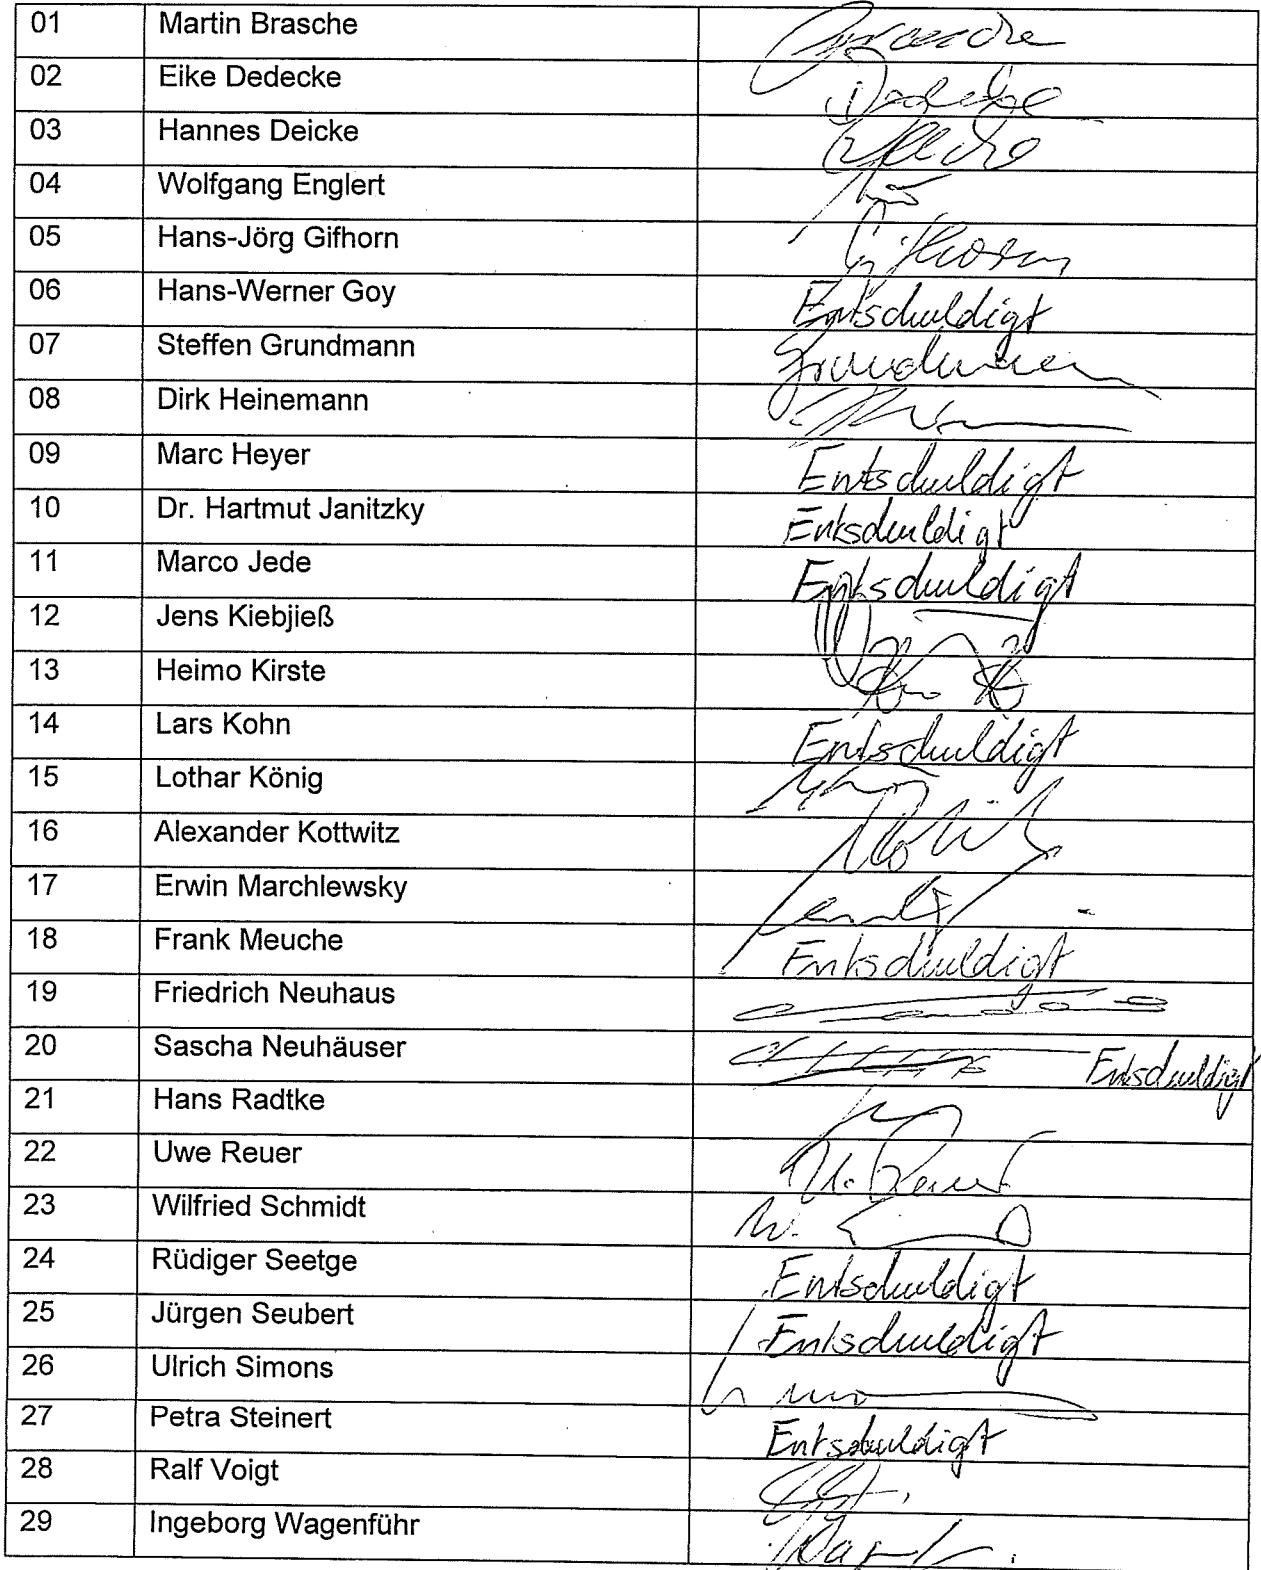 01 Martin Brasche
02 Eike Dedecke Dedecke
03 Hannes Deicke
04 Wolfgang Englert
05 Hans-Jörg Gifhorn Gifhorn
06 Hans-Werner Goy Entschuldigt
07 Steffen Grundmann Grundmann
08 Dirk Heinemann
09 Marc Heyer Entschuldigt
10 Dr. Hartmut Janitzky Entschuldigt
11 Marco Jede Entschuldigt
12 Jens Kiebjieß
13 Heimo Kirste
14 Lars Kohn Entschuldigt
15 Lothar König
16 Alexander Kottwitz
17 Erwin Marchlewsky
18 Frank Meuche Entschuldigt
19 Friedrich Neuhaus
20 Sascha Neuhäuser Entschuldigt
21 Hans Radtke
22 Uwe Reuer U. Reuer
23 Wilfried Schmidt W.
24 Rüdiger Seetge Entschuldigt
25 Jürgen Seubert Entschuldigt
26 Ulrich Simons
27 Petra Steinert Entschuldigt
28 Ralf Voigt
29 Ingeborg Wagenführ